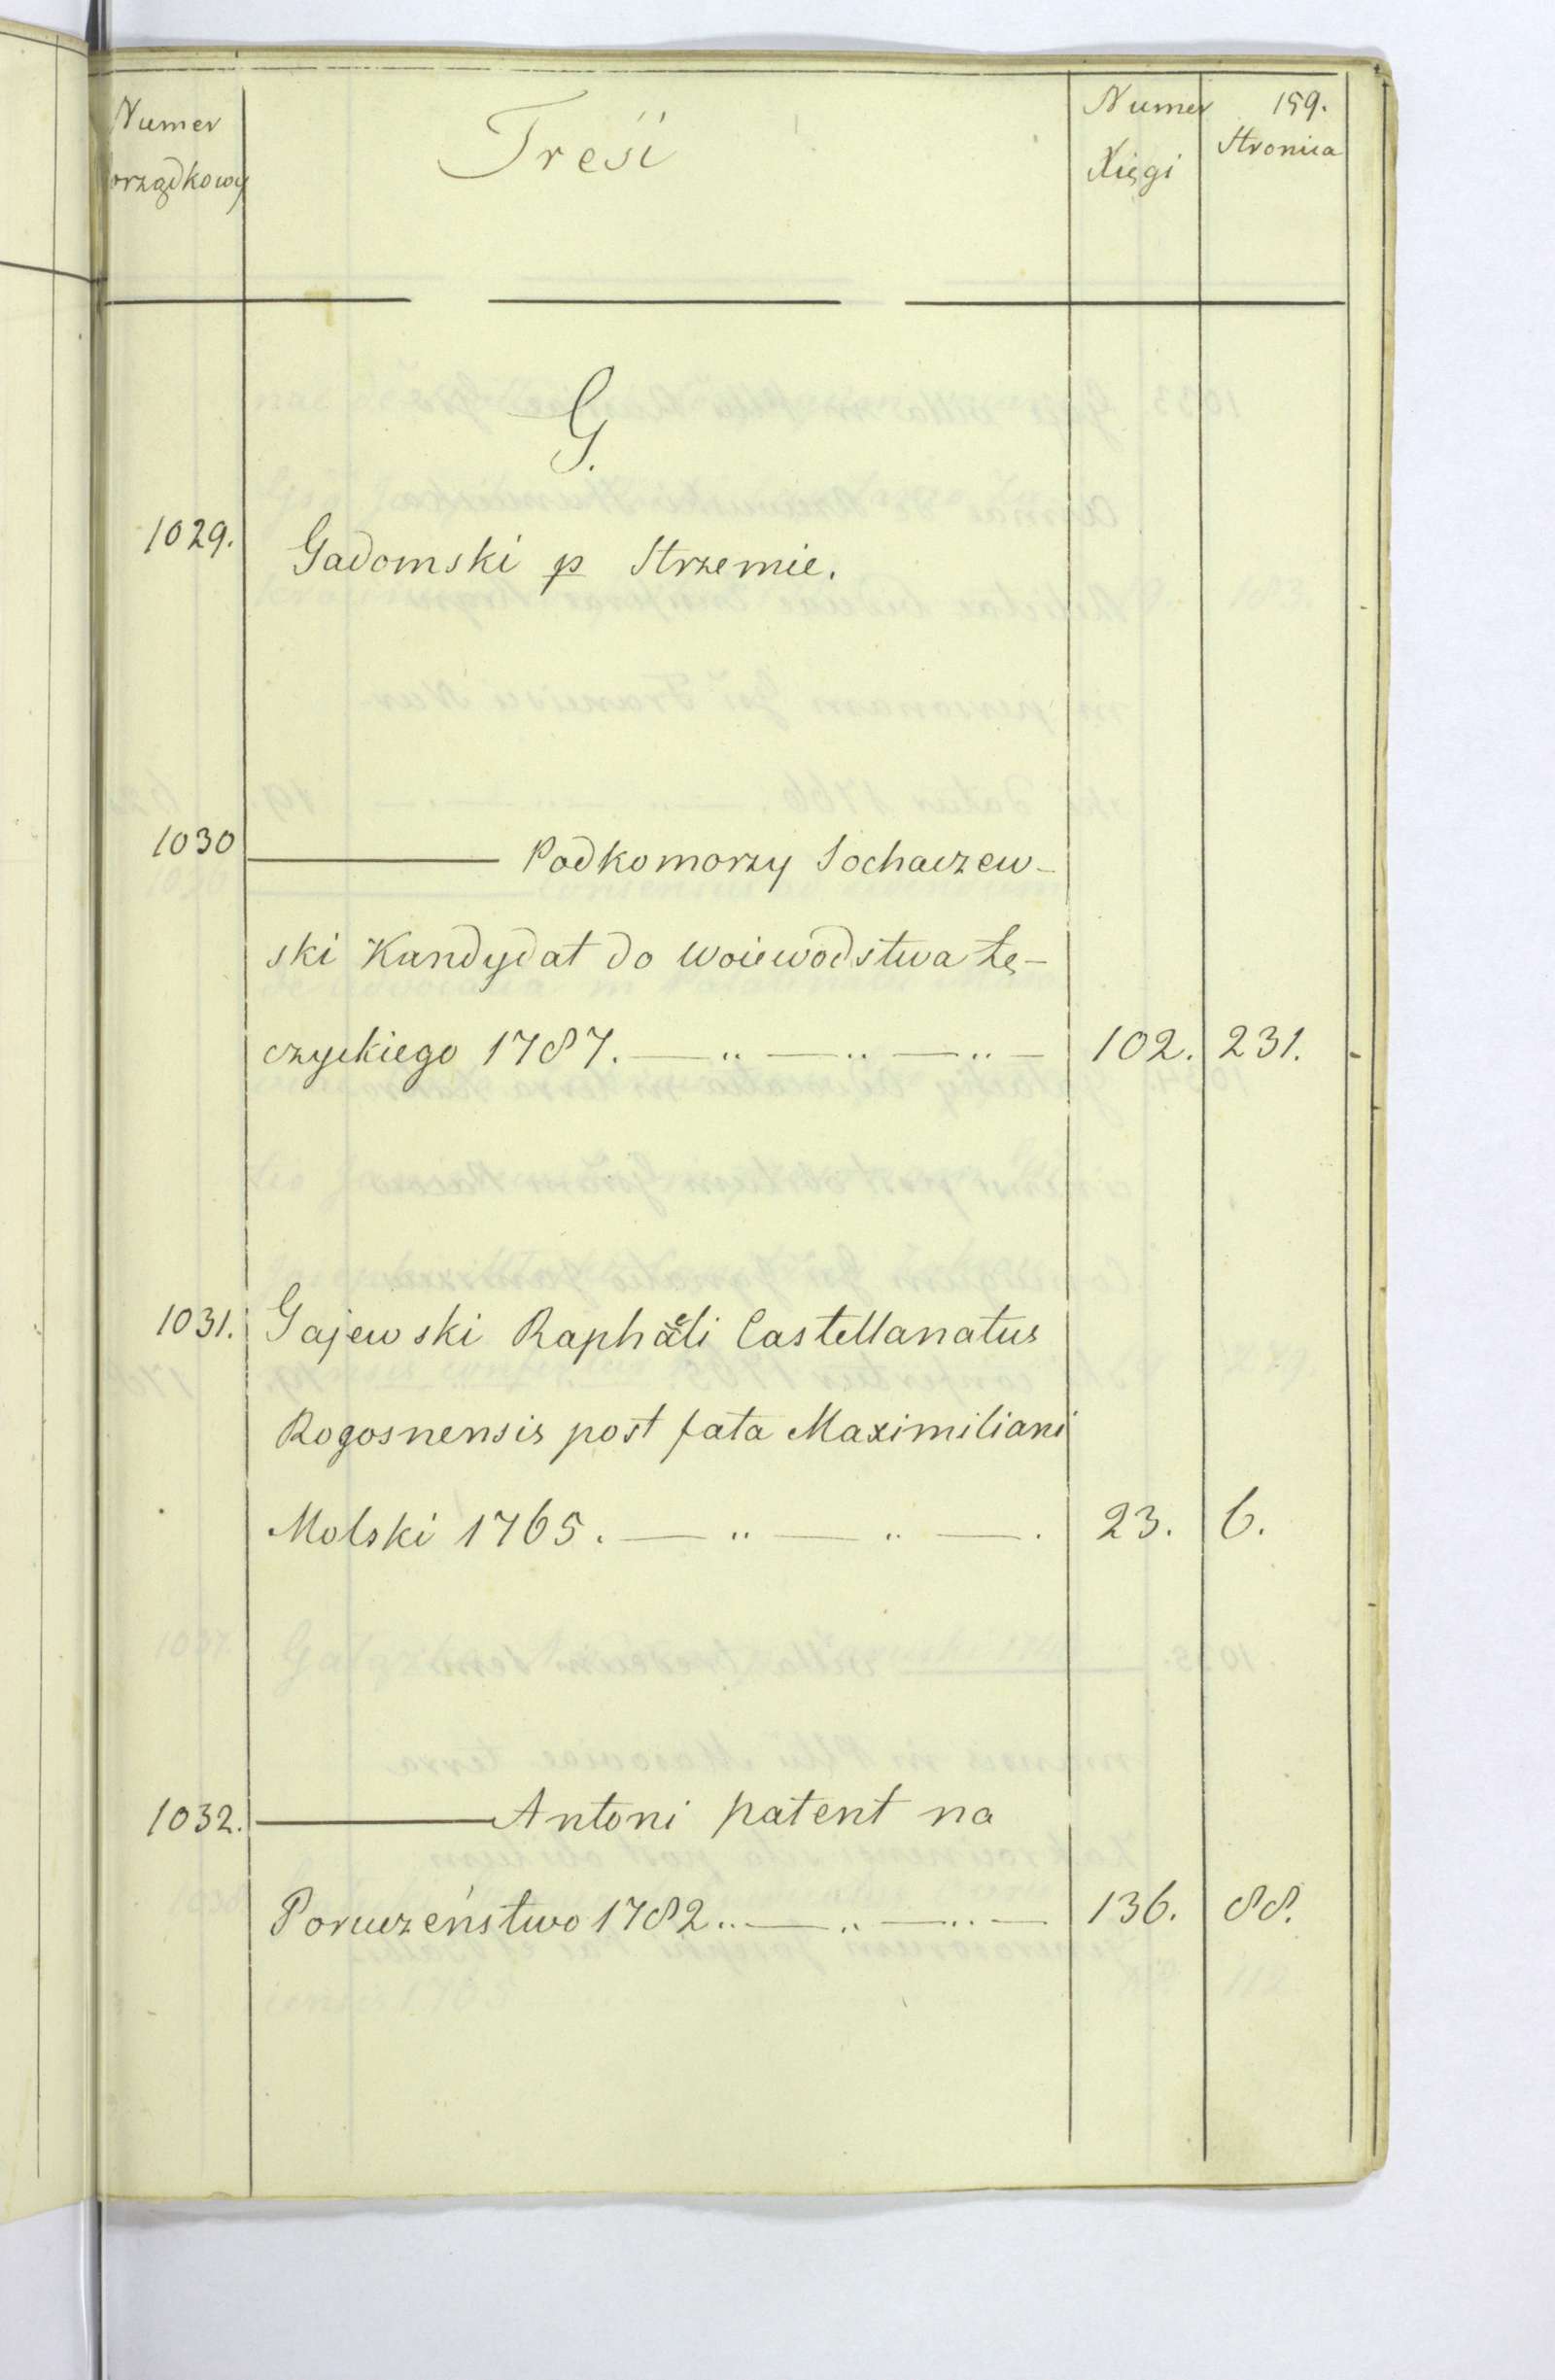 Numer
porządkowy
Treść
Numer
Xięgi
159.
Stronica
G.
1029. Gadomski p Strzemie.
1030 ——— Podkomorzy Sochaczew-
ski Kandydat do Woiewodstwa Łę-
czyckiego 1787. — „ — „ — „ — 102. 231.
1031. Gajewski Raphaeli Castellanatus
Rogosnensis post fata Maximiliani
Molski 1765. — „ — „ — . 23. 6.
1032. ——— Antoni patent na
Poruczeństwo 1782 „ — „ — „ — 136. 88.